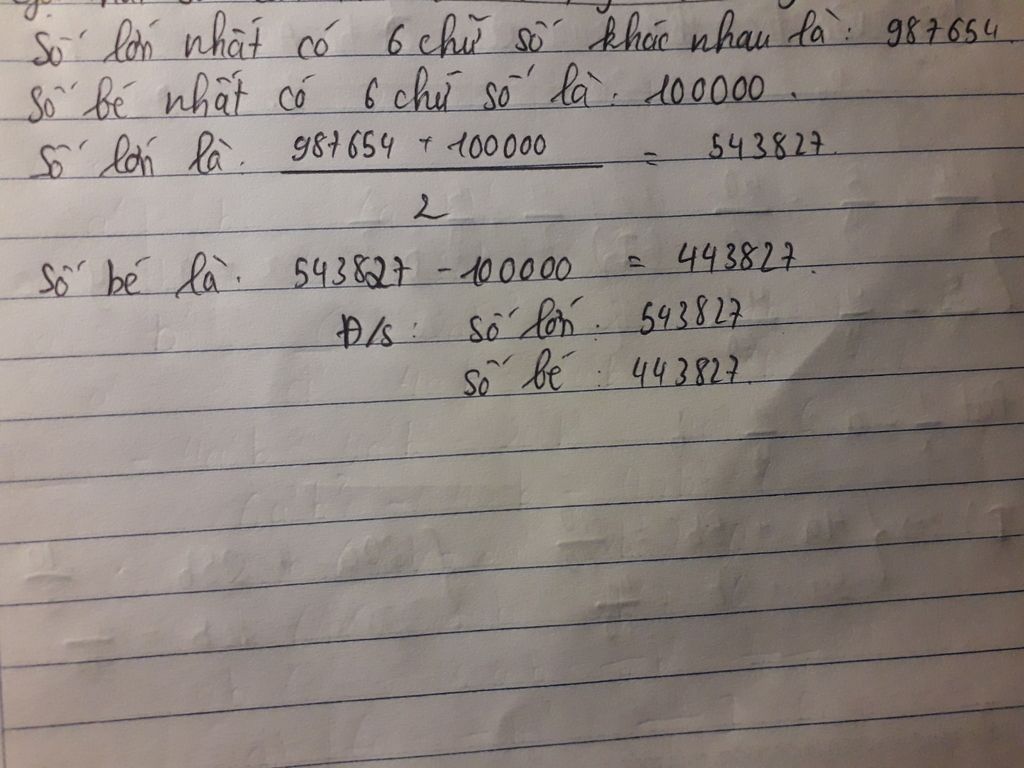 Số lớn nhất có 6 chữ số khác nhau là: 987654.
Số bé nhất có 6 chữ số là: 100000.
Số lớn là: 987654 + 100000 = 543827.
2
Số bé là: 543827 - 100000 = 443827.
Đ/s: Số lớn: 543827
Số bé: 443827.